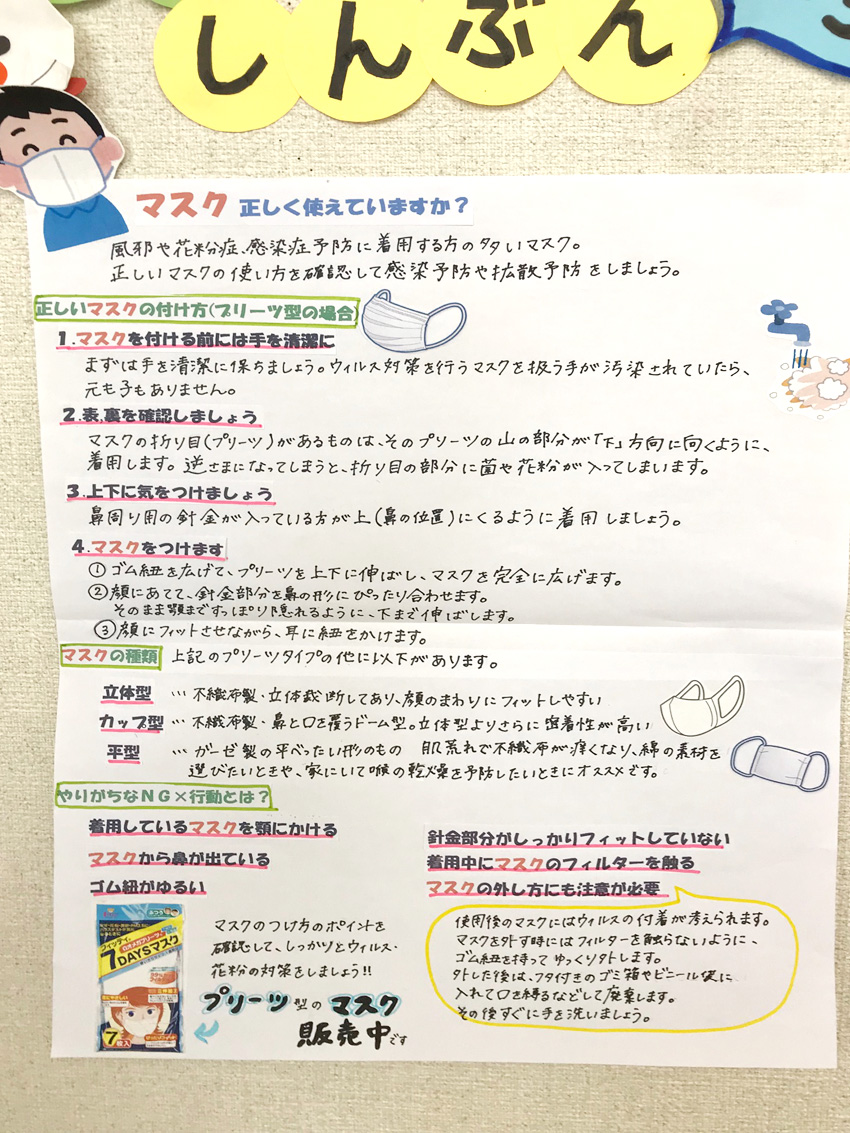 しんぶん
マスク 正しく使えていますか?
風邪や花粉症、感染症予防に着用する方の多いマスク。
正しいマスクの使い方を確認して感染予防や拡散予防をしましょう。
正しいマスクの付け方(プリーツ型の場合)
1.マスクを付ける前には手を清潔に
まずは手を清潔に保ちましょう。ウィルス対策を行うマスクを扱う手が汚染されていたら、
元も子もありません。
2.表,裏を確認しましょう
マスクの折り目(プリーツ)があるものは、そのプリーツの山の部分が「下」方向に向くように、
着用します。逆さまになってしまうと、折り目の部分に菌や花粉が入ってしまいます。
3.上下に気をつけましょう
鼻周り用の針金が入っている方が上(鼻の位置)にくるように着用しましょう。
4.マスクをつけます
①ゴム紐を広げて、プリーツを上下に伸ばし、マスクを完全に広げます。
②顔にあてて、針金部分を鼻の形にぴったり合わせます。
そのまま顎まですっぽり隠れるように、下まで伸ばします。
③顔にフィットさせながら、耳に紐をかけます。
マスクの種類 上記のプリーツタイプの他に以下があります。
立体型 … 不織布製・立体裁断してあり、顔のまわりにフィットしやすい
カップ型 … 不織布製・鼻と口を覆うドーム型。立体型よりさらに密着性が高い
平型 … ガーゼ製の平べったい形のもの 肌荒れで不織布が痒くなり、綿の素材を
選びたいときや、家にいて喉の乾燥を予防したいときにオススメです。
やりがちなNG×行動とは?
着用しているマスクを顎にかける
マスクから鼻が出ている
ゴム紐がゆるい
針金部分がしっかりフィットしていない
着用中にマスクのフィルターを触る
マスクの外し方にも注意が必要
使用後のマスクにはウィルスの付着が考えられます。
マスクを外す時にはフィルターを触らないように、
ゴム紐を持ってゆっくり外します。
外した後は、フタ付きのゴミ箱やビニール袋に
入れて口を縛るなどして廃棄します。
その後すぐに手を洗いましょう。
マスクのつけ方のポイントを
確認して、しっかりとウィルス・
花粉の対策をしましょう!!
プリーツ型のマスク
販売中です
ふつう
フィッティ
7DAYSマスク
7枚入